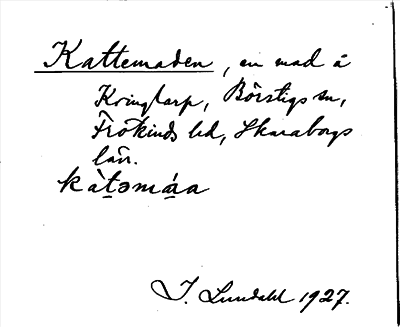 Kattemaden, en mad å
Kringtorp, Börstigs sn,
Frökinds hd, Skaraborgs
län.
kàt̠əmáa
I. Lundahl 1927.